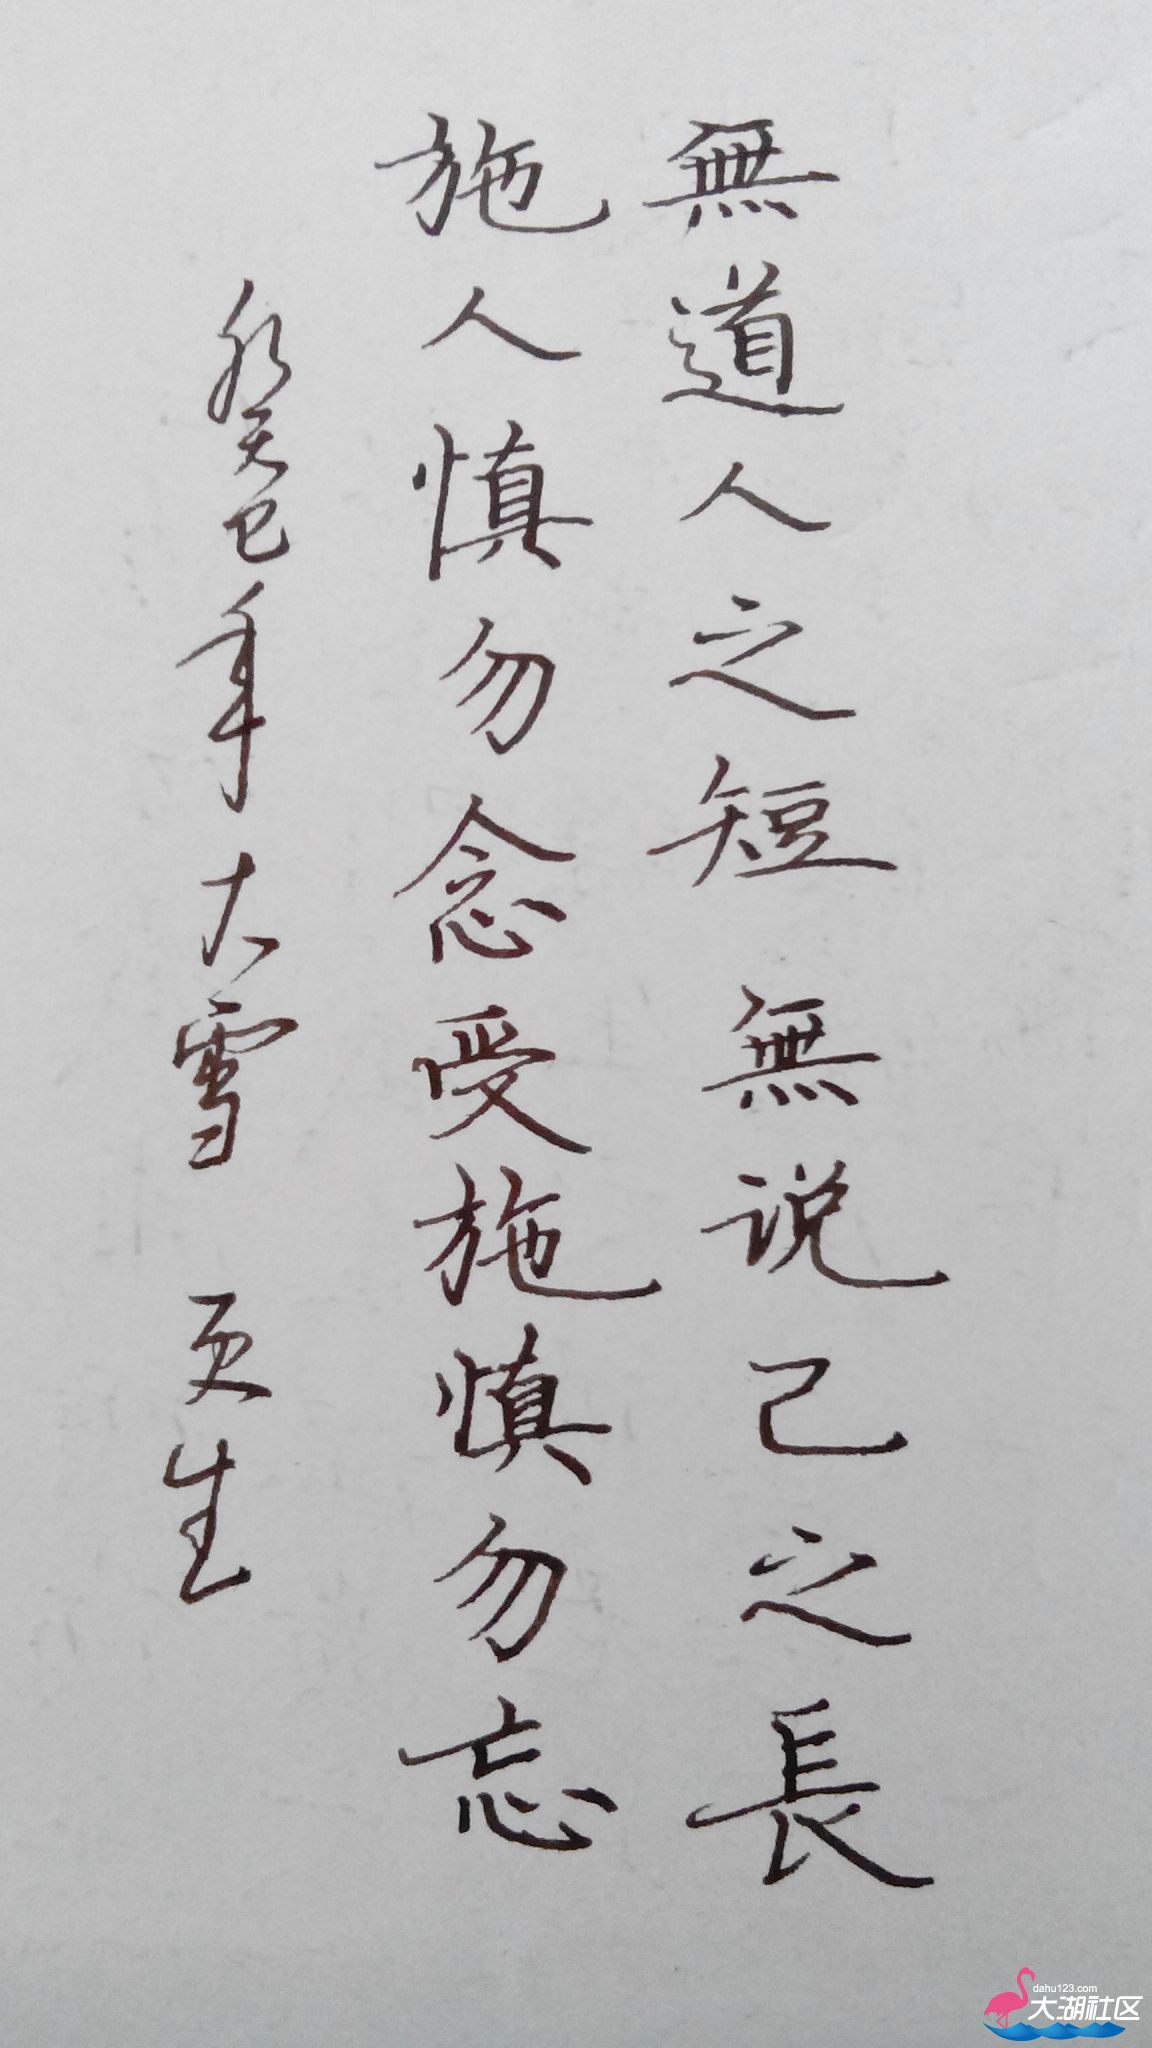 無道人之短 無说己之長
施人慎勿念受施慎勿忘
癸巳年大雪 更生
dahu123.com
大湖社区